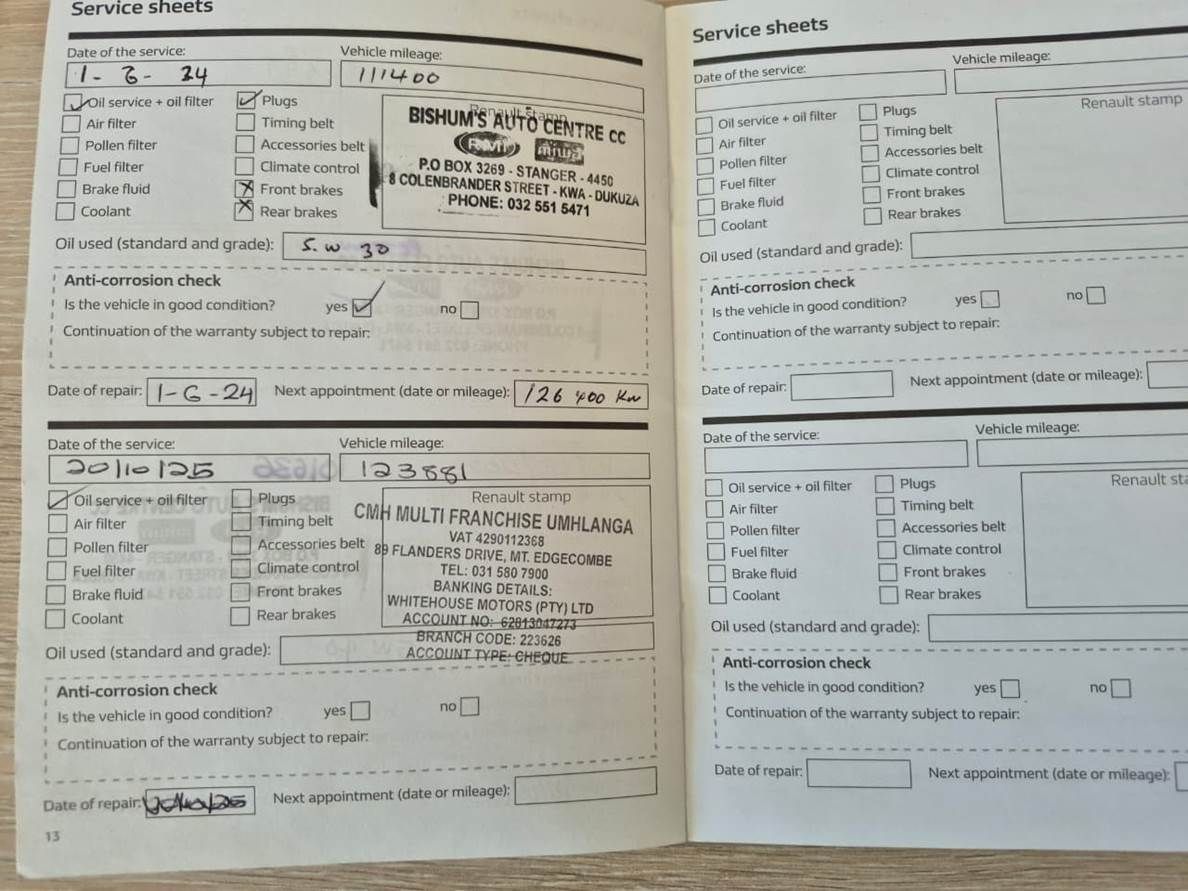 Service sheets
Date of the service:
Vehicle mileage:
1-6-24
111400
Oil service + oil filter
Plugs
Air filter
Timing belt
Pollen filter
Accessories belt
Fuel filter
Climate control
Brake fluid
Front brakes
Coolant
Rear brakes
Renault stamp
BISHUM'S AUTO CENTRE CC
P.O BOX 3269 - STANGER - 4450
8 COLENBRANDER STREET - KWA - DUKUZA
PHONE: 032 551 5471
Oil used (standard and grade):
5. W 30
Anti-corrosion check
Is the vehicle in good condition?
yes
no
Continuation of the warranty subject to repair:
Date of repair:
1-6-24
Next appointment (date or mileage):
126 400 Km
Date of the service:
Vehicle mileage:
20/10/25
123881
Oil service + oil filter
Plugs
Air filter
Timing belt
Pollen filter
Accessories belt
Fuel filter
Climate control
Brake fluid
Front brakes
Coolant
Rear brakes
Renault stamp
CMH MULTI FRANCHISE UMHLANGA
VAT 4290112368
89 FLANDERS DRIVE, MT. EDGECOMBE
TEL: 031 580 7900
BANKING DETAILS:
WHITEHOUSE MOTORS (PTY) LTD
ACCOUNT NO: 62813047273
BRANCH CODE: 223626
ACCOUNT TYPE: CHEQUE
Oil used (standard and grade):
Anti-corrosion check
Is the vehicle in good condition?
yes
no
Continuation of the warranty subject to repair:
Date of repair:
Next appointment (date or mileage):
13
Service sheets
Date of the service:
Vehicle mileage:
Oil service + oil filter
Plugs
Air filter
Timing belt
Pollen filter
Accessories belt
Fuel filter
Climate control
Brake fluid
Front brakes
Coolant
Rear brakes
Renault stamp
Oil used (standard and grade):
Anti-corrosion check
Is the vehicle in good condition?
yes
no
Continuation of the warranty subject to repair:
Date of repair:
Next appointment (date or mileage):
Date of the service:
Vehicle mileage:
Oil service + oil filter
Plugs
Air filter
Timing belt
Pollen filter
Accessories belt
Fuel filter
Climate control
Brake fluid
Front brakes
Coolant
Rear brakes
Renault sta
Oil used (standard and grade):
Anti-corrosion check
Is the vehicle in good condition?
yes
no
Continuation of the warranty subject to repair:
Date of repair:
Next appointment (date or mileage):